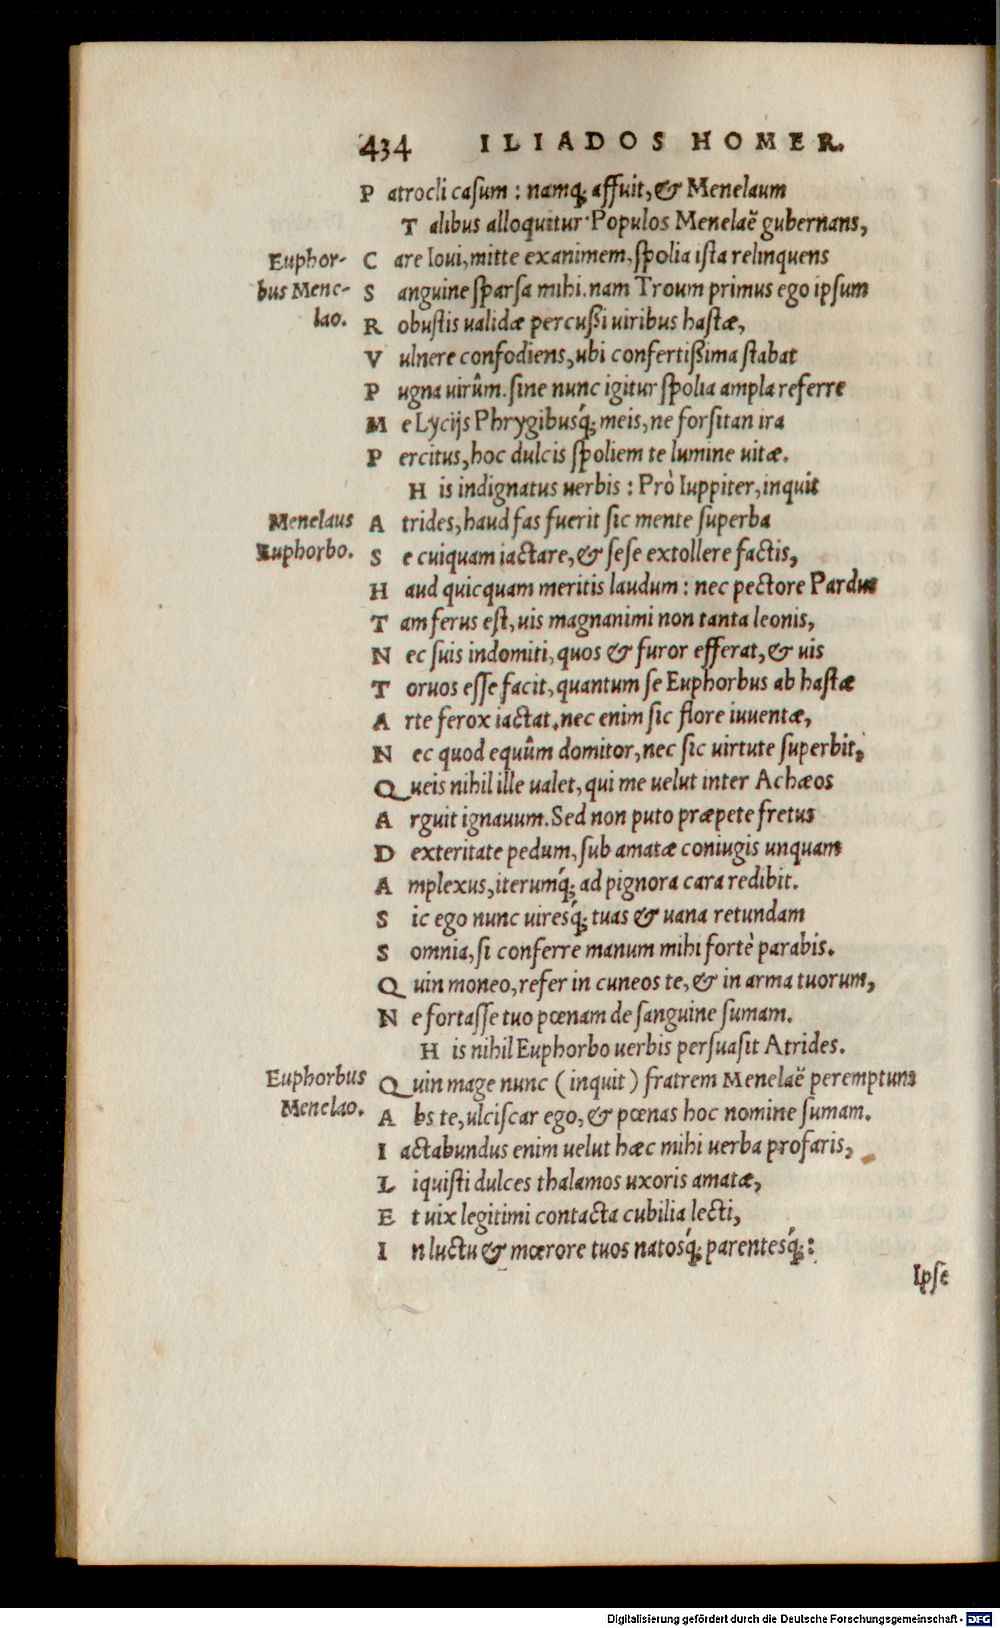 434 ILIADOS HOMER.
P atrocli casum : namq; affuit, & Menelaum
T alibus alloquitur· Populos Menelaë gubernans,
Euphor- C are Ioui, mitte exanimem, spolia ista relinquens
bus Mene- S anguine sparsa mihi. nam Troum primus ego ipsum
lao. R obustis ualidæ percußi uiribus hastæ,
V ulnere confodiens, ubi confertißima stabat
P ugna uirûm. sine nunc igitur spolia ampla referre
M e Lycijs Phrygibusq́; meis, ne forsitan ira
P ercitus, hoc dulcis spoliem te lumine uitæ.
H is indignatus uerbis : Prò Iuppiter, inquit
Menelaus A trides, haud fas fuerit sic mente superba
Euphorbo. S e cuiquam iactare, & sese extollere factis,
H aud quicquam meritis laudum : nec pectore Pardus
T am ferus est, uis magnanimi non tanta leonis,
N ec suis indomiti, quos & furor efferat, & uis
T oruos esse facit, quantum se Euphorbus ab hastæ
A rte ferox iactat. nec enim sic flore iuuentæ,
N ec quod equûm domitor, nec sic uirtute superbit,
Q ueis nihil ille ualet, qui me uelut inter Achæos
A rguit ignauum. Sed non puto præpete fretus
D exteritate pedum, sub amatæ coniugis unquam
A mplexus, iterumq́; ad pignora cara redibit.
S ic ego nunc uiresq́; tuas & uana retundam
S omnia, si conferre manum mihi fortè parabis.
Q uin moneo, refer in cuneos te, & in arma tuorum,
N e fortasse tuo pœnam de sanguine sumam.
H is nihil Euphorbo uerbis persuasit Atrides.
Euphorbus Q uin mage nunc (inquit) fratrem Menelaë peremptum
Menelao. A bs te, ulciscar ego, & pœnas hoc nomine sumam.
I actabundus enim uelut hæc mihi uerba profaris,
L iquisti dulces thalamos uxoris amatæ,
E t uix legitimi contacta cubilia lecti,
I n luctu & mœrore tuos natosq́; parentesq́; :
Ipse
Digitalisierung gefördert durch die Deutsche Forschungsgemeinschaft - DFG